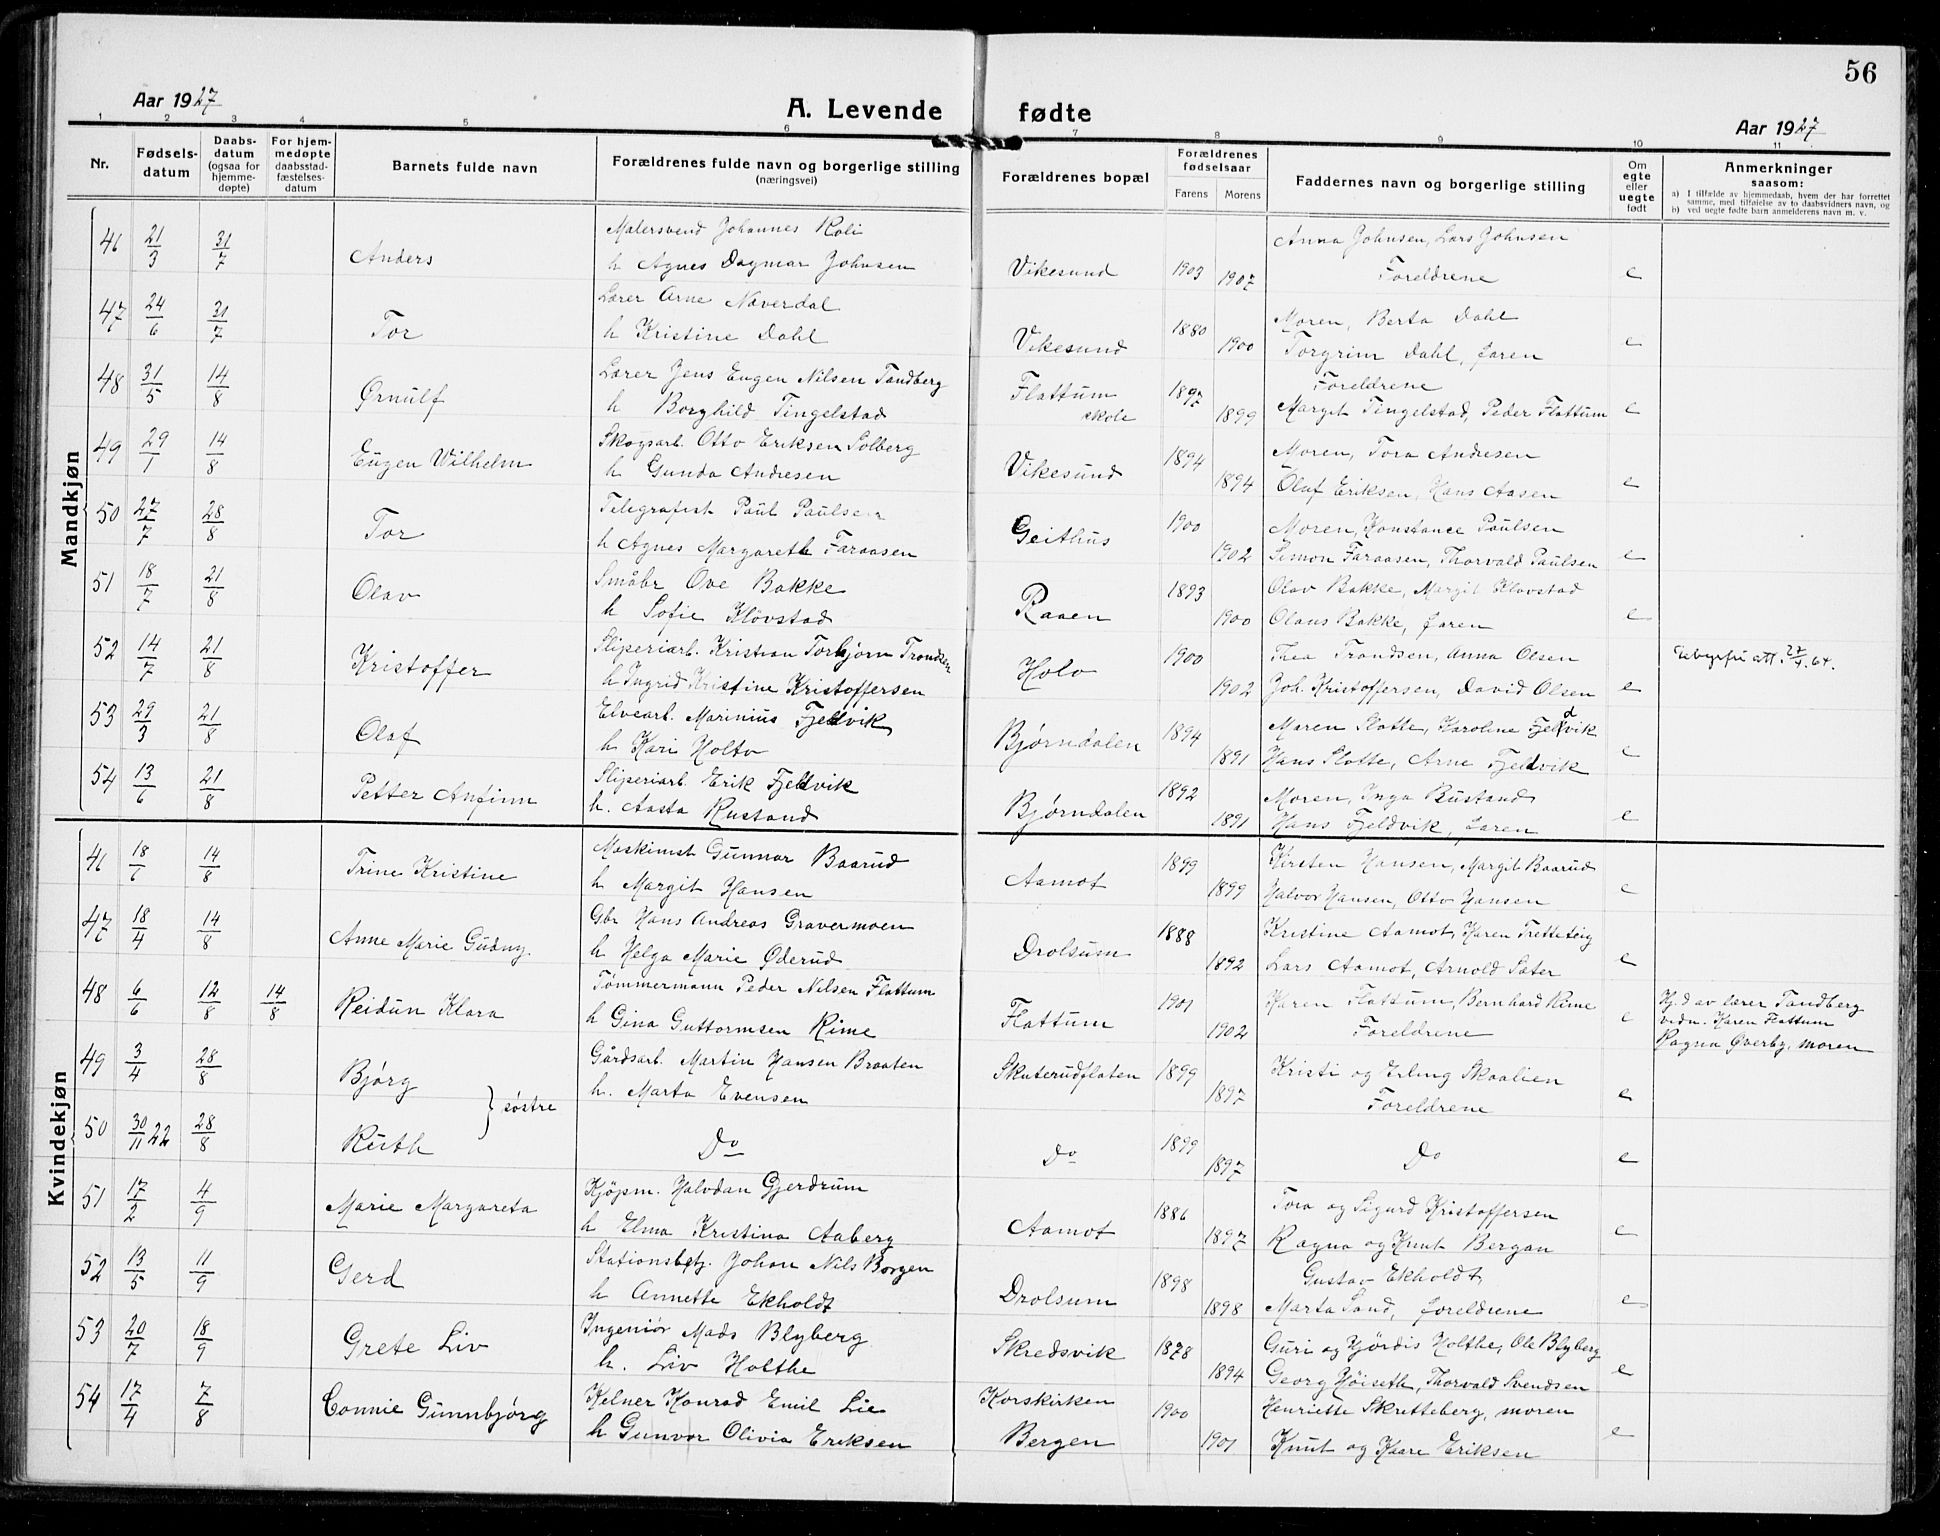 56
Aar 1927
A. Levende fødte
Aar 1927
1 2 3 4 5 6 7 8 9 10 11
Nr.
Fødsels-
datum
Daabs-
datum
(ogsaa for
hjemme-
døpte)
For hjem-
medøpte
daabsstad-
fæstelses-
datum
Barnets fulde navn
Forældrenes fulde navn og borgerlige stilling
(næringsvei)
Forældrenes bopæl
Forældrenes
fødselsaar
Farens Morens
Faddernes navn og borgerlige stilling
Om
egte
eller
uegte
født
Anmerkninger
saasom:
a) I tilfælde av hjemmedaab, hvem der har forrettet
samme, med tilføielse av to daabsvidners navn, og
b) ved uegte fødte barn anmelderens navn m. v.
Mandkjøn
Malersvend Johannes Roli Anna Johnsen, Lars Johnsen
46 21/3 31/7 Anders h Agnes Dagmar Johnsen Vikesund 1903 1907 Foreldrene e
Lærer Arne Næverdal Moren, Berta Dahl
47 24/6 31/7 Tor h Kristine Dahl Vikesund 1880 1900 Torgrim Dahl, faren e
Lærer Jens Eugen Nilsen Tandberg Flattum Foreldrene
48 31/5 14/8 Ørnulf h Borghild Tingelstad skole 1897 1899 Margit Tingelstad, Peder Flattum e
Skogsarb. Otto Eriksen Solberg Moren, Tora Andresen
49 29/1 14/8 Eugen Wilhelm h Gunda Andresen Vikesund 1894 1894 Olaf Eriksen, Hans Aasen e
Telegrafist Paul Paulsen Moren, Konstance Paulsen
50 27/7 28/8 Tor h Agnes Margareth Faraasen Geithus 1900 1902 Simon Faraasen, Thorvald Paulsen e
Småbr Ove Bakke Olav Bakke, Margit Kløvstad
51 18/7 21/8 Olav h Sofie Kløvstad Raaen 1893 1900 Olaus Bakke, faren e
Sliperiarb. Kristian Torbjørn Trondsen Thea Trondsen, Anna Olsen
52 14/7 21/8 Kristoffer h Ingrid Kristine Kristoffersen Holo 1900 1902 Joh. Kristoffersen, David Olsen e att. 27/4.64.
Elvearb. Marinius Fjeldvik Maren Slotte, Karoline Fjeldvik
53 29/3 21/8 Olaf h Kari Holto Bjørndalen 1894 1891 Hans Slotte, Arne Fjeldvik e
Sliperiarb. Erik Fjeldvik Moren, Inga Bustand
54 13/6 21/8 Petter Anfinn h. Aasta Rustand Bjørndalen 1892 1891 Hans Fjeldvik, faren e
Kvindekjøn
Maskinist Gunnar Baarud Kirsten Hansen, Margit Baarud
46 18/6 14/8 Trine Kristine h Margit Hansen Aamot 1899 1899 Halvor Hansen, Otto Hansen e
Gbr Hans Andreas Gravermoen Kristine Aamot, Karen Tretteteig
47 18/4 14/8 Anne Marie Gudny h Helga Marie Øderud Drolsum 1888 1892 Lars Aamot, Arnold Sæter e
Tømmermann Peder Nilsen Flattum Karen Flattum, Bernhard Rime Hj.d av lærer Tandberg
48 6/6 12/8 14/8 Reidun Klara h Gina Guttormsen Rime Flattum 1901 1902 Foreldrene e vidn. Karen Flattum
Ragna Øverby, moren
Gårdsarb. Martin Hansen Braaten Kristi og Erling Skaalien
49 3/4 28/8 Bjørg h. Marta Evensen Skuterudflaten 1899 1897 Foreldrene e
} søstre
50 30/11 22 28/8 Ruth Do Do 1899 1897 Do e
Kjøpm. Halvdan Gjerdrum Tora og Sigurd Kristoffersen
51 17/2 4/9 Marie Margareta h Elma Kristina Aaberg Aamot 1886 1897 Ragna og Knut Bergan e
Stationsbetj. Johan Nils Borgen Gustav Ekholdt,
52 13/5 11/9 Gerd h Annette Ekholdt Drolsum 1898 1898 Marta Sand, foreldrene e
Ingeniør Mads Blyberg Guri og Hjördis Holthe, Ole Blyberg
53 20/7 18/9 Grete Liv h. Liv Holthe Skredsvik 1878 1894 Georg Høiseth, Thorvald Svendsen e
Kelner Konrad Emil Lie Korskirken Henriette Skretteberg, moren
54 17/4 7/8 Connie Gunnbjørg h Gunvor Olivia Eriksen Bergen 1900 1901 Knut og Kaare Eriksen e